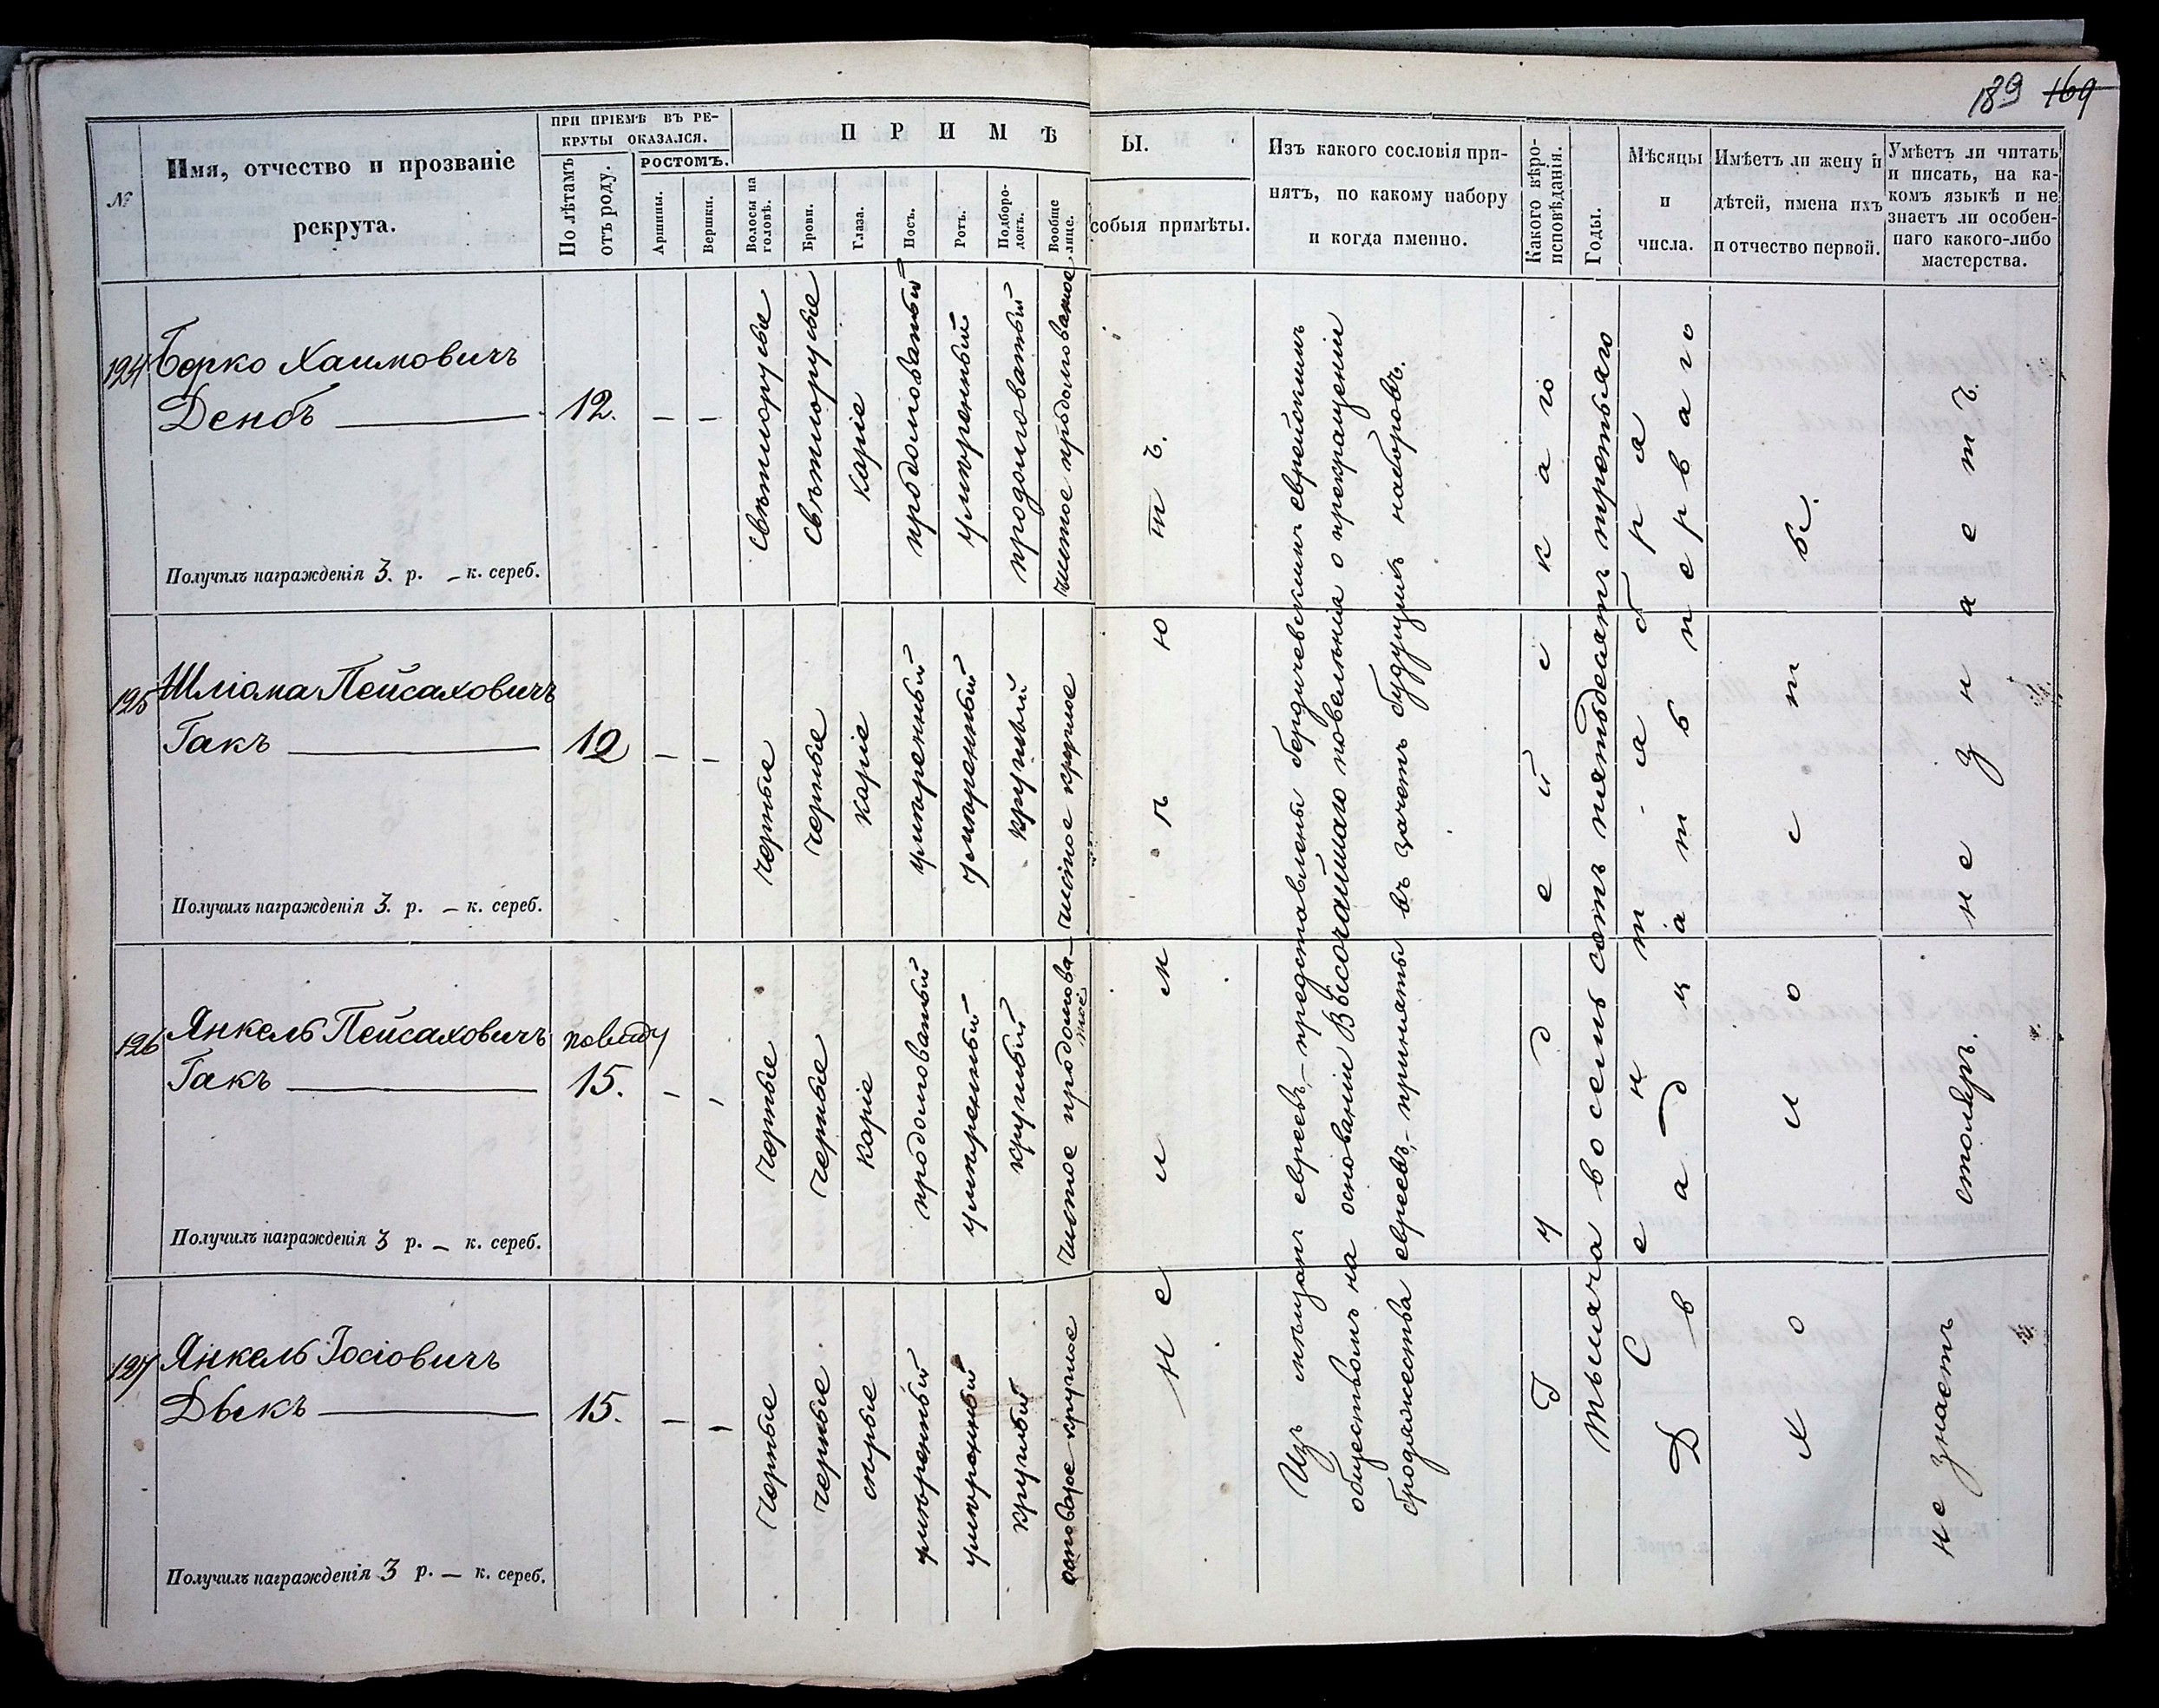 189 169
№
Имя, отчество и прозваніе
рекрута.
ПРИ ПРІЕМѢ ВЪ РЕ-
КРУТЫ ОКАЗАЛСЯ.
По лѣтамъ
отъ роду.
РОСТОМЪ.
Аршины.
Вершки.
ПРИМѢ
Ы.
Волосы на
головѣ.
Брови.
Глаза.
Носъ.
Ротъ.
Подборо-
докъ.
Вообще
лице.
собыя примѣты.
Изъ какого сословія при-
нятъ, по какому набору
и когда именно.
Какого вѣро-
исповѣданія.
Годы.
Мѣсяцы
и
числа.
Имѣетъ ли жену и
дѣтей, имена ихъ
и отчество первой.
Умѣетъ ли читать
и писать, на ка-
комъ языкѣ и не
знаетъ ли особен-
наго какого-либо
мастерства.
124 Берко Хаимовичъ
Денбъ
12. – –
свѣтлорусые
свѣтлорусые
каріе
продолговатый
умѣренный
продолговатый
чистое продолговатое
Получилъ награжденія 3. р. – к. сереб.
125 Шліома Пейсаховичъ
Гакъ
12 – –
черные
черные
каріе
умѣренный
умѣренный
круглый
чистое круглое
Получилъ награжденія 3. р. – к. сереб.
126 Янкель Пейсаховичъ
Гакъ
повиду
15. – –
черные
черные
каріе
продолговатый
умѣренный
круглый
чистое продолгова-
тое
Получилъ награжденія 3 р. – к. сереб.
127 Янкель Іосіовичъ
Дыкъ
15. – –
черные
черные
сѣрые
умѣренный
умѣренный
круглый
круглое
Получилъ награжденія 3 р. – к. сереб.
Не имѣютъ.
Изъ мѣщанъ евреевъ, – представлены бердичевскимъ еврейскимъ
обществомъ на основаніи Высочайшаго повелѣнія о прекращеніи
бродяжества евреевъ, – приняты въ зачетъ будущихъ наборовъ.
Іудейскаго
тысяча восемь сотъ пятьдесятъ третьяго
Сентября
двадцать перваго
Холосты.
не знаетъ.
столяръ.
не знаетъ